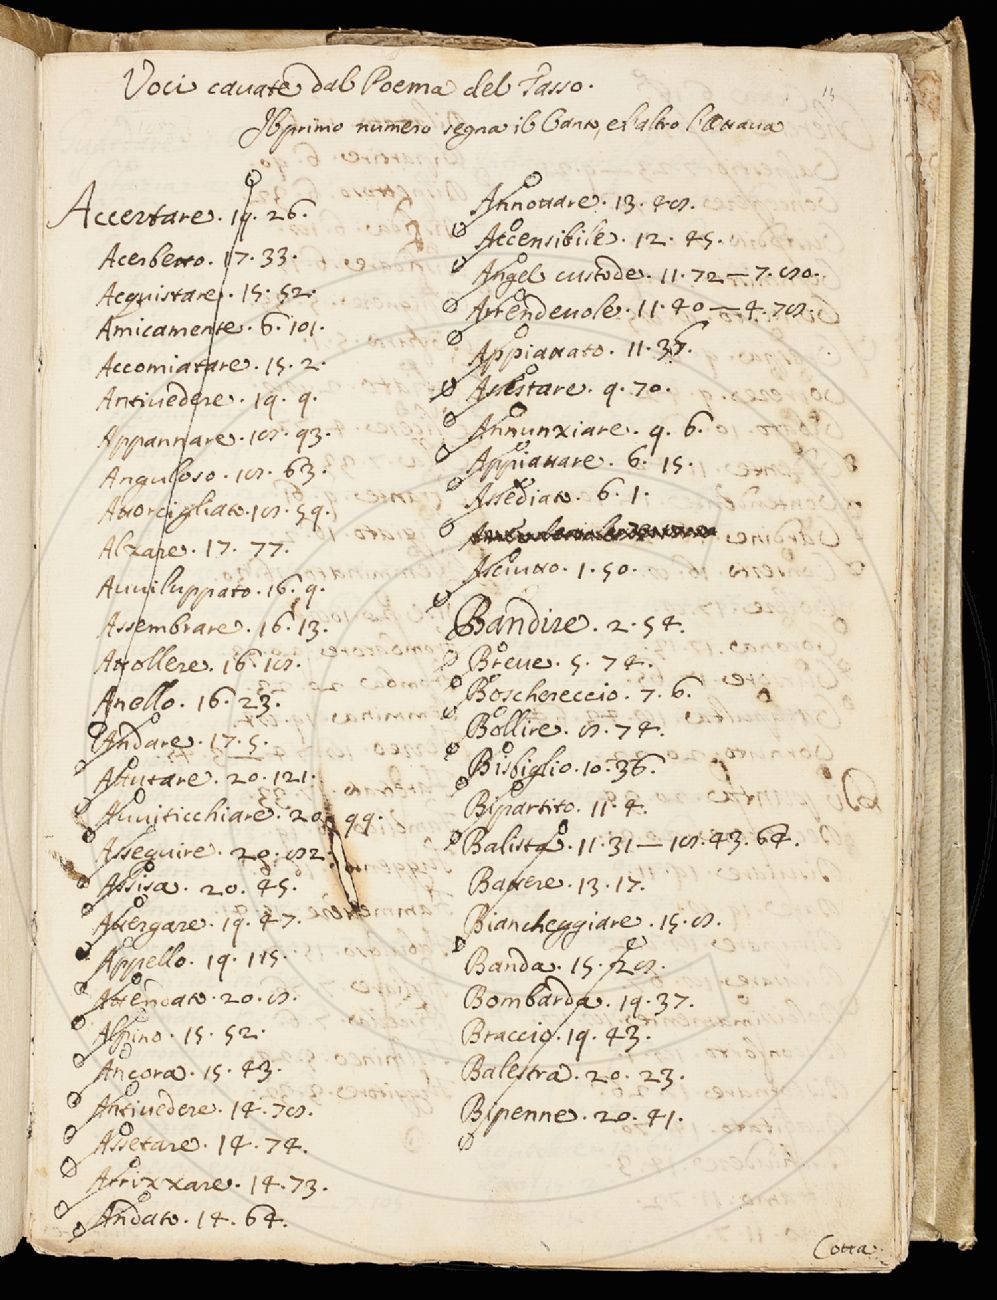 Voci cauate dal Poema del Tasso.
Il primo numero segna il Canto, e l'altro l'Ottaua
Accertare. 19. 26.
Acerbetto. 17. 33.
Acquistare. 15. 52.
Amicamente. 6. 101.
Accomiatare. 15. 2.
Antiuedere. 19. 9.
Appannare. 18. 93.
Anguloso. 18. 63.
Attorcigliato. 18. 59.
Alzare. 17. 77.
Auuiluppato. 16. 9.
Assembrare. 16. 13.
Attollere. 16. 18.
Anello. 16. 23.
Andare. 17. 5.
Attutare. 20. 121.
Auuiticchiare. 20. 99.
Asseguire. 20. 82.
Assisa. 20. 45.
Attergare. 19. 47.
Appello. 19. 115.
Attendato. 20. 8.
Alpino. 15. 52.
Ancora. 15. 43.
Antiuedere. 14. 78.
Assetare. 14. 74.
Attizzare. 14. 73.
Andato. 14. 64.
Annottare. 13. 48.
Accensibile. 12. 45.
Angel custode. 11. 72 — 7. 80.
Arrendeuole. 11. 40 — 4. 78.
Appiattato. 11. 36.
Assestare. 9. 70.
Annunziare. 9. 6.
Appiattare. 6. 15.
Assediato. 6. 1.
Asciutto. 1. 50.
Bandire. 2. 54.
Breue. 5. 74.
Boschereccio. 7. 6.
Bollire. 8. 74.
Bisbiglio. 10. 36.
Bipartito. 11. 4.
Balista. 11. 31 — 18. 43. 64.
Battere. 13. 17.
Biancheggiare. 15. 8.
Banda. 15. 28.
Bombarda. 19. 37.
Braccio. 19. 43.
Balestra. 20. 23.
Bipenne. 20. 41.
Cotta